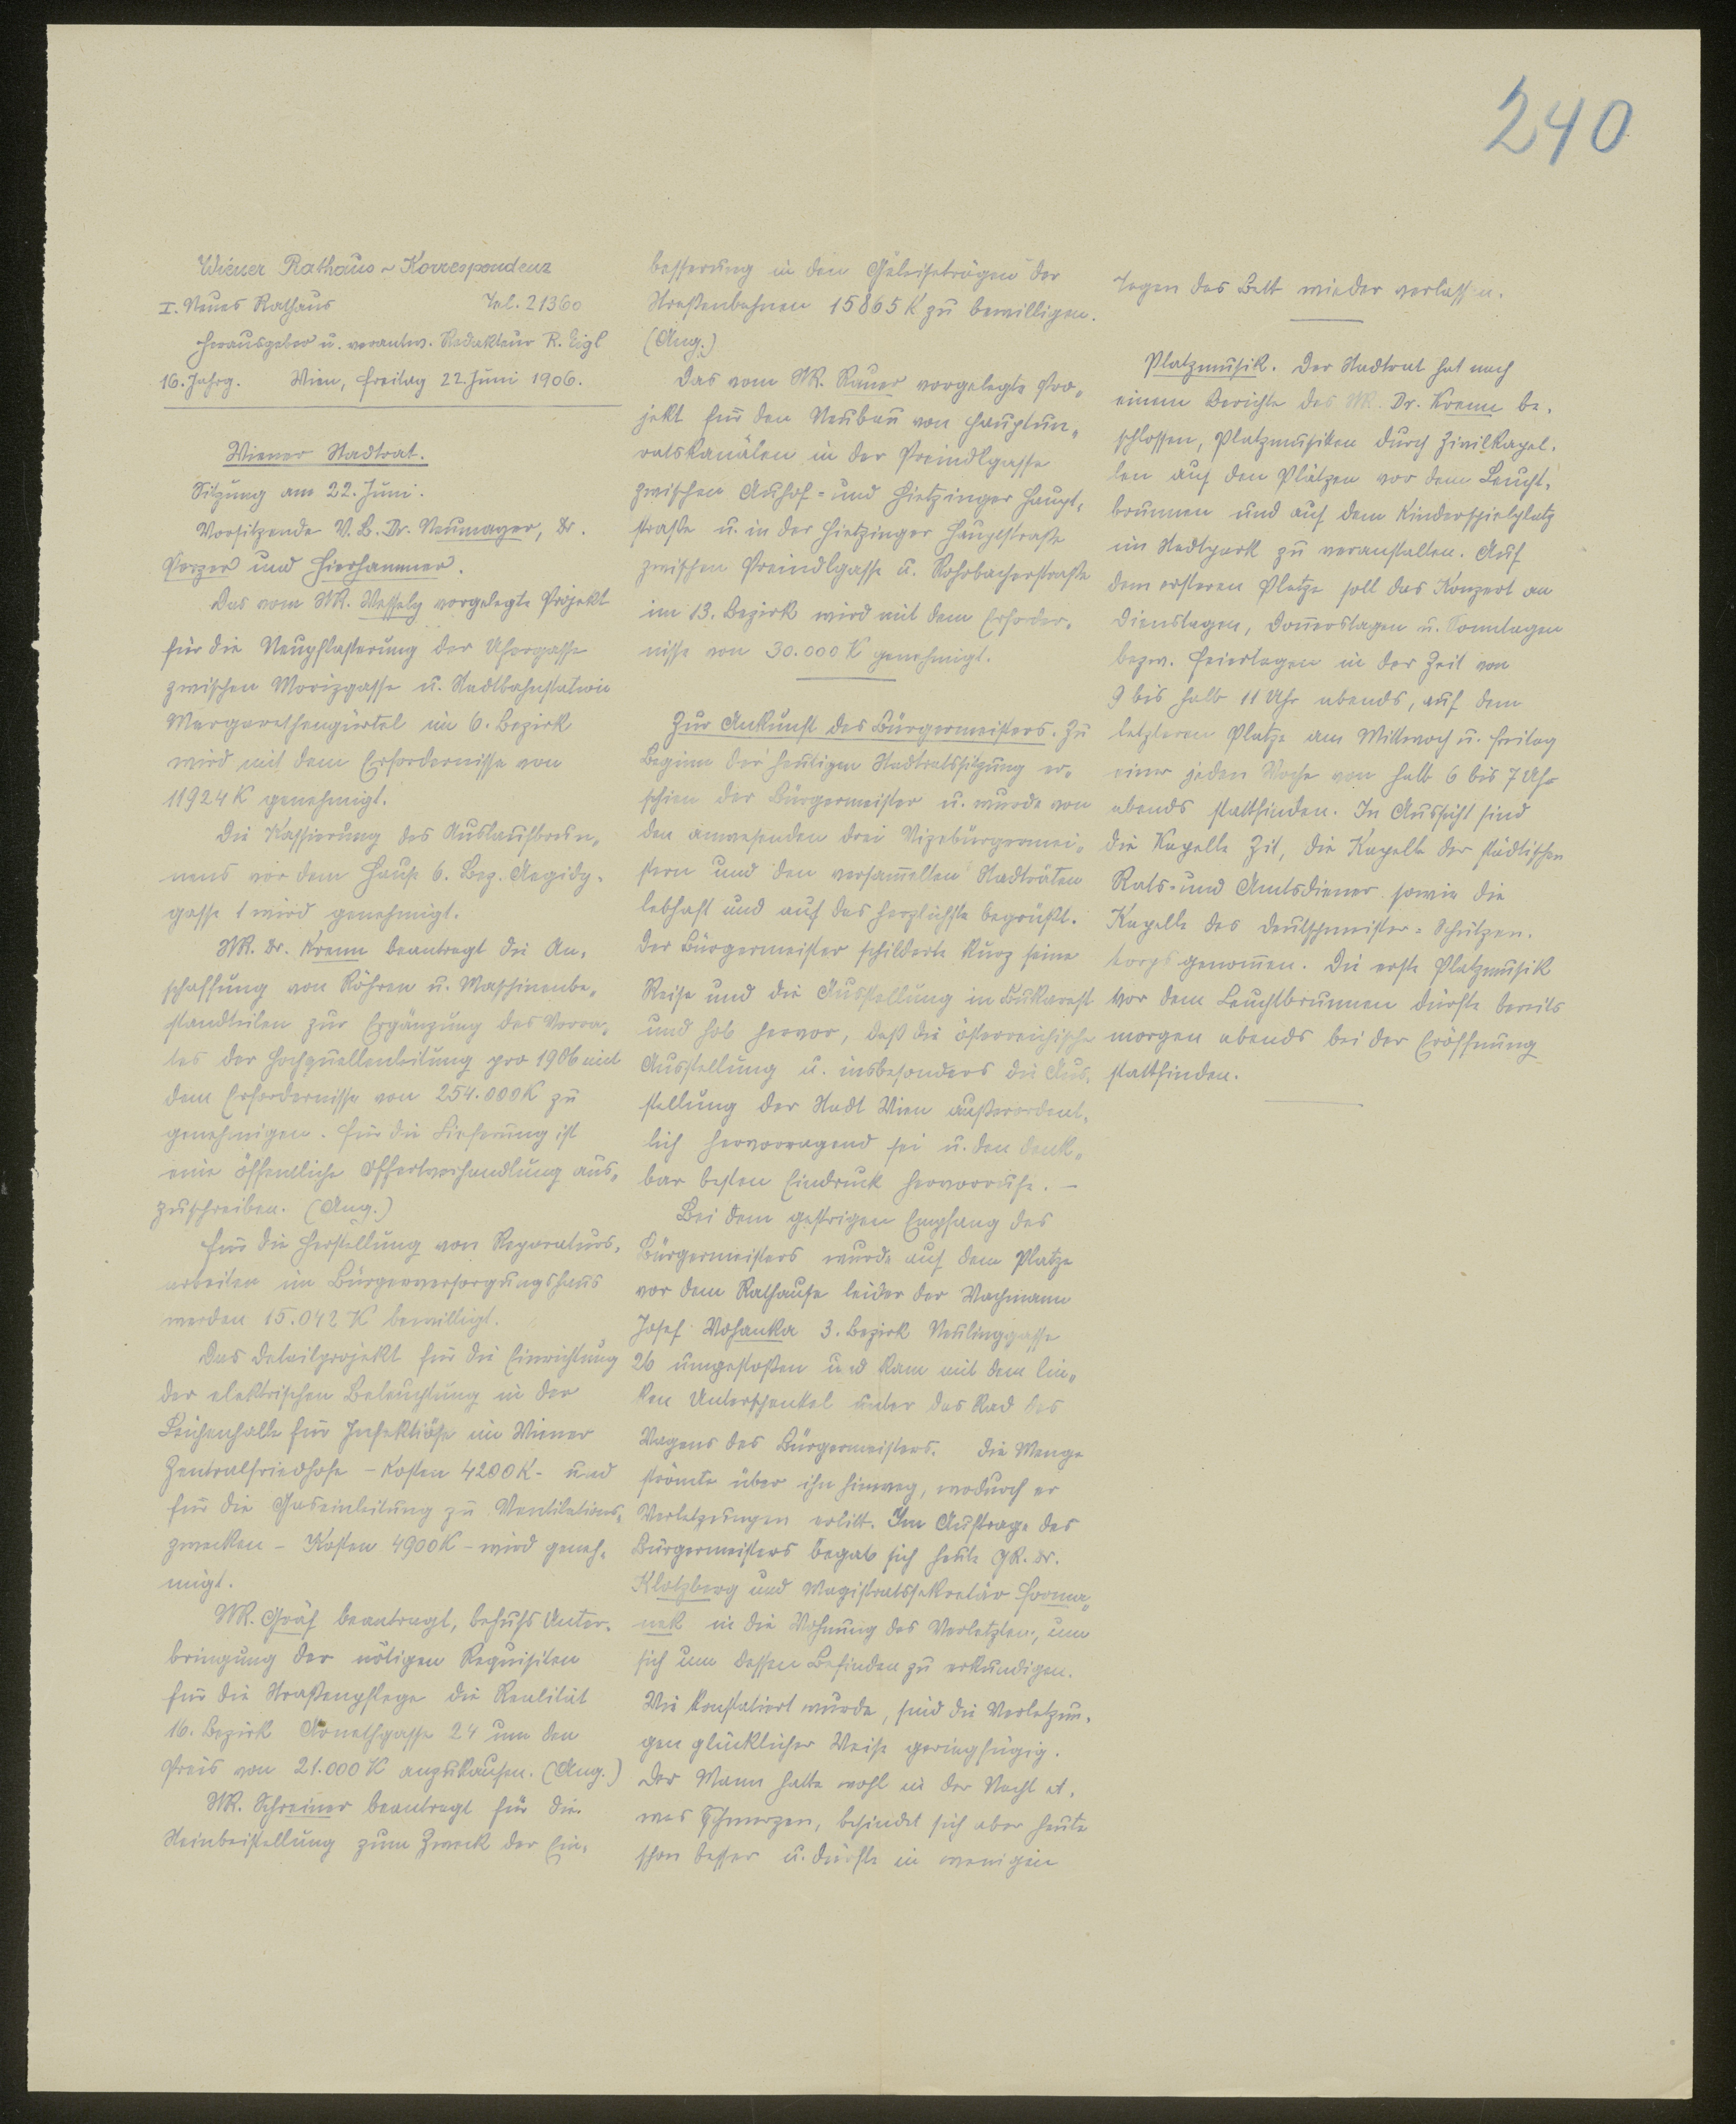 240
Wiener Rathaus-Korrespondenz
I. Neues Rathaus Tel. 21360
Herausgeber u. verantw. Redakteur R. Eigl
16. Jahrg. Wien, Freitag 22. Juni 1906.
Wiener Stadtrat.
Sitzung am 22. Juni.
Vorsitzende V. B. Dr. Neumayer, Dr.
Porzer und Hierhammer.
Das vom StR. Wessely vorgelegte Projekt
für die Neupflasterung der Ufergasse
zwischen Morizgasse u. Stadtbahnstation
Margarethengürtel im 6. Bezirk
wird mit dem Erfordernisse von
11924 K genehmigt.
Die Kassierung des Auslaufbrun„
nens vor dem Hause 6. Bez. Aegidy-
gasse 1 wird genehmigt.
StR. Dr. Krenn beantragt die An-
schaffung von Röhren u. Maschinenbe„
standteilen zur Ergänzung des Vorra-
tes der Hochquellenleitung pro 1906 mit
dem Erfordernisse von 254.000 K zu
genehmigen. Für die Lieferung ist
eine öffentliche Offertverhandlung aus„
zuschreiben. (Ang.)
Für die Herstellung von Reparaturs-
arbeiten im Bürgerversorgungshaus
werden 15.042 K bewilligt.
Das Detailprojekt für die Einrichtung
der elektrischen Beleuchtung in der
Leichenhalle für Infektiöse im Wiener
Zentralfriedhofe - Kosten 4200 K - und
für die Gaseinleitung zu Ventilations-
zwecken - Kosten 4900 K - wird geneh-
migt.
StR. Gräf beantragt, behufs Unter-
bringung der nötigen Requisiten
für die Straßenpflege die Realität
16. Bezirk 24 um den
Preis von 21.000 K anzukaufen. (Ang.)
StR. Schreiner beantragt für die
Steinbeistellung zum Zweck der Ein-
besserung in den Geleisetrögen der
Straßenbahnen 15865 K zu bewilligen.
(Ang.)
Das vom StR. Rauer vorgelegte Pro„
jekt für den Neubau von Hauptun„
ratskanälen in der Preindlgasse
zwischen Auhof- und Hietzinger Haupt-
straße u. in der Hietzinger Hauptstraße
zwischen Preindlgasse u. Rohrbacherstraße
im 13. Bezirk wird mit dem Erforder-
nisse von 30.000 K genehmigt.
Zur Ankunft des Bürgermeisters. Zu
Beginn der heutigen Stadtratssitzung er-
schien der Bürgermeister u. wurde von
den anwesenden drei Vizebürgermei-
stern und den versam̅elten Stadträten
lebhaft und auf das herzlichste begrüßt.
Der Bürgermeister schilderte kurz seine
Reise und die Ausstellung in Bukarest
und hob hervor, daß die österreichische
Ausstellung u. insbesonders die Aus-
stellung der Stadt Wien außerordent-
lich hervorragend sei u. den denk„
bar besten Eindruck hervorrufe. -
Bei dem gestrigen Empfang des
Bürgermeisters wurde auf dem Platze
vor dem Rathause leider der Wachmann
Josef Wohanka 3. Bezirk Neulinggasse
26 umgestoßen und kam mit dem lin„
ken Unterschenkel unter das Rad des
Wagens des Bürgermeisters. Die Menge
strömte über ihn hinweg, wodurch er
Verletzungen erlitt. Im Auftrage des
Bürgermeisters begab sich heute GR. Dr.
Klotzberg und Magistratssekretär Forma„
nek in die Wohnung des Verletzten, um
sich um dessen Befinden zu erkundigen.
Wie konstatiert wurde, sind die Verletzun-
gen glücklicher Weise geringfügig.
Der Mann hatte wohl in der Nacht et-
was Schmerzen, befindet sich aber heute
schon besser u. dürfte in wenigen
Tagen das Bett wieder verlassen.
Platzmusik. Der Stadtrat hat nach
einem Berichte des StR. Dr. Krenn be-
schlossen, Platzmusiken durch Zivilkapel-
len auf den Plätzen vor dem Leucht-
brunnen und auf dem Kinderspielplatz
im Stadtpark zu veranstalten. Auf
dem ersteren Platze soll das Konzert an
Dienstagen, Don̅erstagen u. Sonntagen
bezw. Feiertagen in der Zeit von
9 bis halb 11 Uhr abends, auf dem
letzteren Platze am Mittwoch u. Freitag
einer jeden Woche von halb 6 bis 7 Uhr
abends stattfinden. In Aussicht sind
die Kapelle Zit, die Kapelle der städtischen
Rats- und Amtsdiener sowie die
Kapelle des Deutschmeister-Schützen-
korps genom̅en. Die erste Platzmusik
vor dem Leuchtbrunnen dürfte bereits
morgen abends bei der Eröffnung
stattfinden.